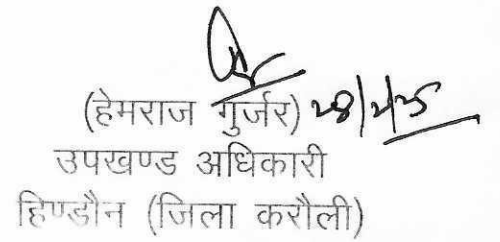 (हेमराज गुर्जर) 28/2/25
उपखण्ड अधिकारी
हिण्डौन (जिला करौली)